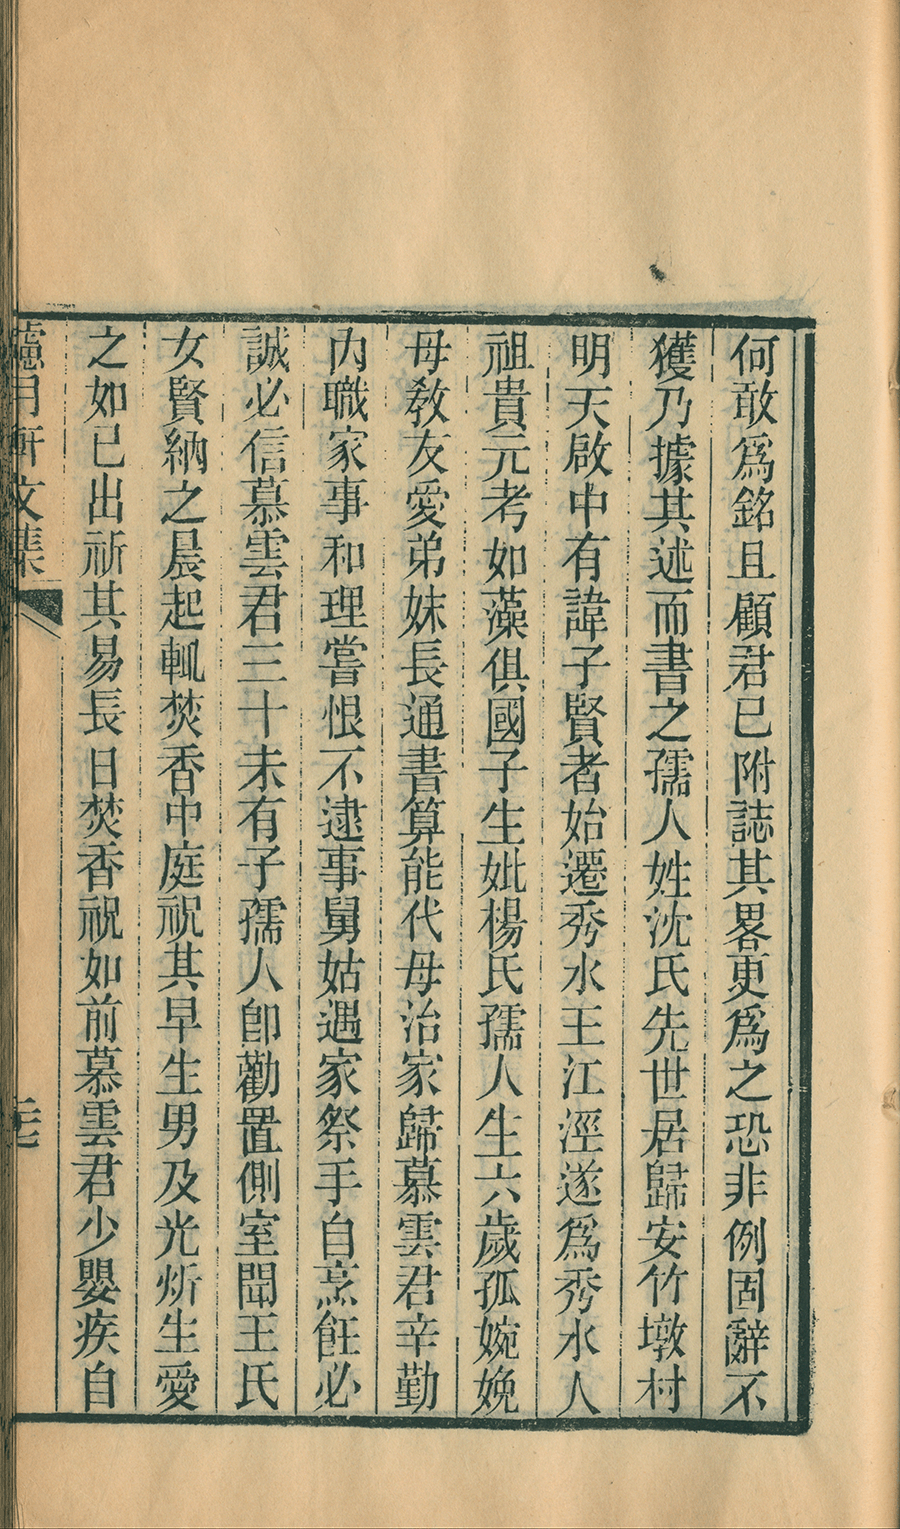 何敢爲銘且顧君已附誌其畧更爲之恐非例固辭不
獲乃據其述而書之孺人姓沈氏先世居歸安竹墩村
明天啟中有諱子賢者始遷秀水王江涇遂爲秀水人
祖貴元考如藻俱國子生妣楊氏孺人生六歲孤婉娩
母敎友愛弟妹長通書算能代母治家歸慕雲君辛勤
內職家事和理嘗恨不逮事舅姑遇家祭手自烹飪必
誠必信慕雲君三十未有子孺人卽勸置側室聞王氏
女賢納之晨起輒焚香中庭祝其早生男及光炘生愛
之如已出祈其易長日焚香祝如前慕雲君少嬰疾自
月軒文集